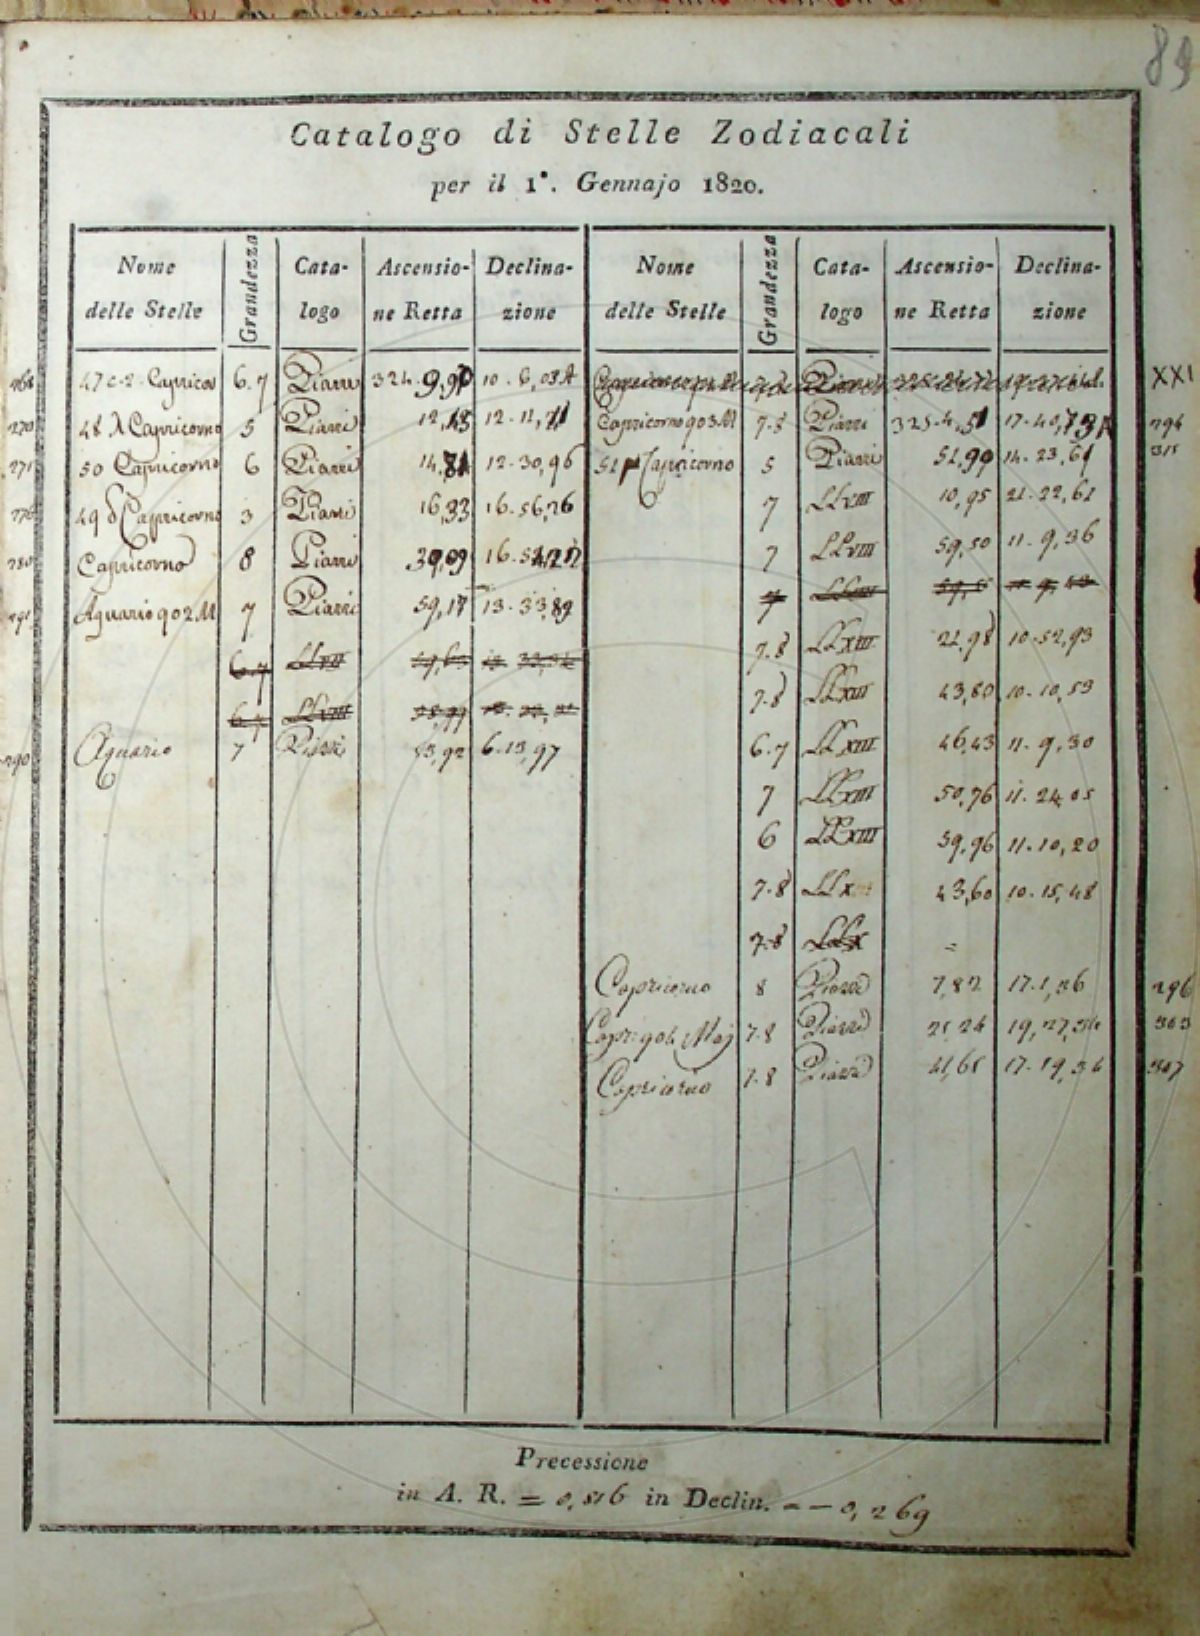 89
Catalogo di Stelle Zodiacali
per il 1°. Gennajo 1820.
Nome delle Stelle Grandezza Cata-logo Ascensio-ne Retta Declina-zione
47 c.2. Capricor 6.7 Piazzi 324. 10. 6,03A
270 48 λ Capricorno 5 Piazzi 12. 11,71
271 50 Capricorno 6 Piazzi 12. 30,96
49 δ Capricorno 3 Piazzi 16,33 16. 56,26
Capricorno 8 Piazzi 39,09
Aquario 902 M 7 Piazzi 59,17 13. 33,89
6.7 LLVII
6.7 LLVIII
290 Aquario 7 Piazzi 53,92 6. 13,97
Nome delle Stelle Grandezza Cata-logo Ascensio-ne Retta Declina-zione
XXI
Capricorno 903 M 7.8 Piazzi 325. 4,51 17. 40,73A 294
51 μ Capricorno 5 Piazzi 51,90 14. 23,61 315
7 LLVIII 10,95 21. 22,61
7 LLVIII 59,50 11. 9,36
7 LLVIII
7.8 LLXIII 21,98 10. 52,93
7.8 LLXIII 43,80 10. 10,53
6.7 LLXIII 46,43 11. 9,30
7 LLXIII 50,76 11. 24,05
6 LLXIII 59,96 11. 10,20
7.8 LLX 43,60 10. 15,48
7.8 LLX =
Capricorno 8 Piazzi 7,82 17. 1,36 296
Capr: 904 Maj 7.8 Piazzi 303
Capricorno 7.8 Piazzi 41,65 17. 19,34 307
Precessione
in A. R. = 0,816 in Declin. = – 0,269